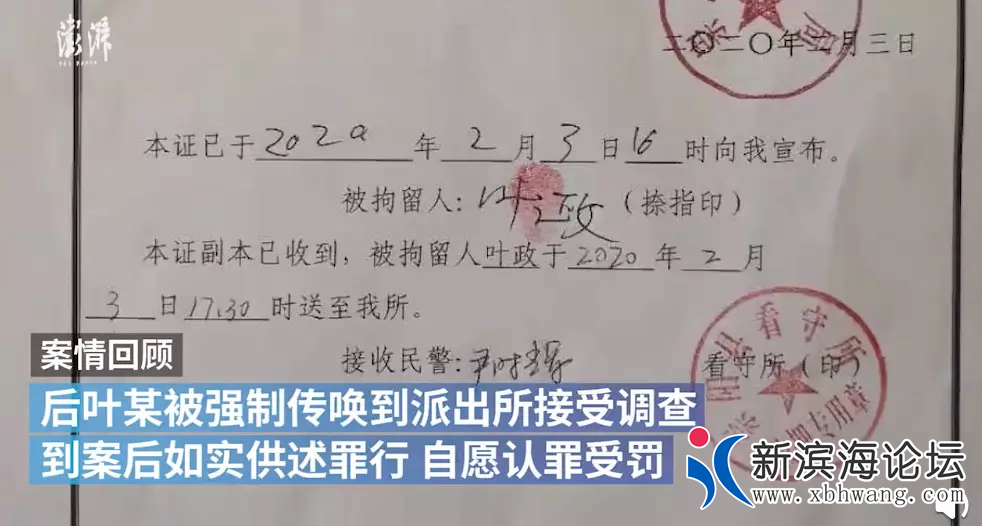 澎湃
THE PAPER
二〇二〇年二月三日
本证已于 2020 年 2 月 3 日 16 时向我宣布。
被拘留人：叶政（捺指印）
本证副本已收到，被拘留人叶政于 2020 年 2 月
3 日 17.30 时送至我所。
接收民警： 看守所（印）
县看守所
专用章
案情回顾
后叶某被强制传唤到派出所接受调查
到案后如实供述罪行 自愿认罪受罚
新滨海论坛
www.xbhwang.com